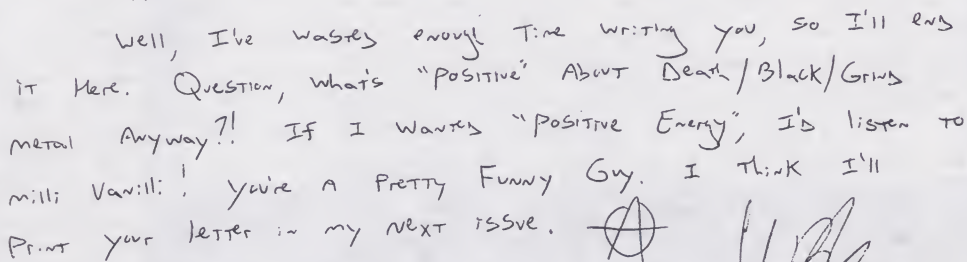 Well, I've wasted enough Time writing you, so I'll end
it Here. Question, what's "positive" About Death/Black/Grind
metal Anyway?! If I wanted "positive Energy", I'd listen to
milli Vanilli! You're A Pretty Funny Guy. I Think I'll
Print your letter in my next issue.